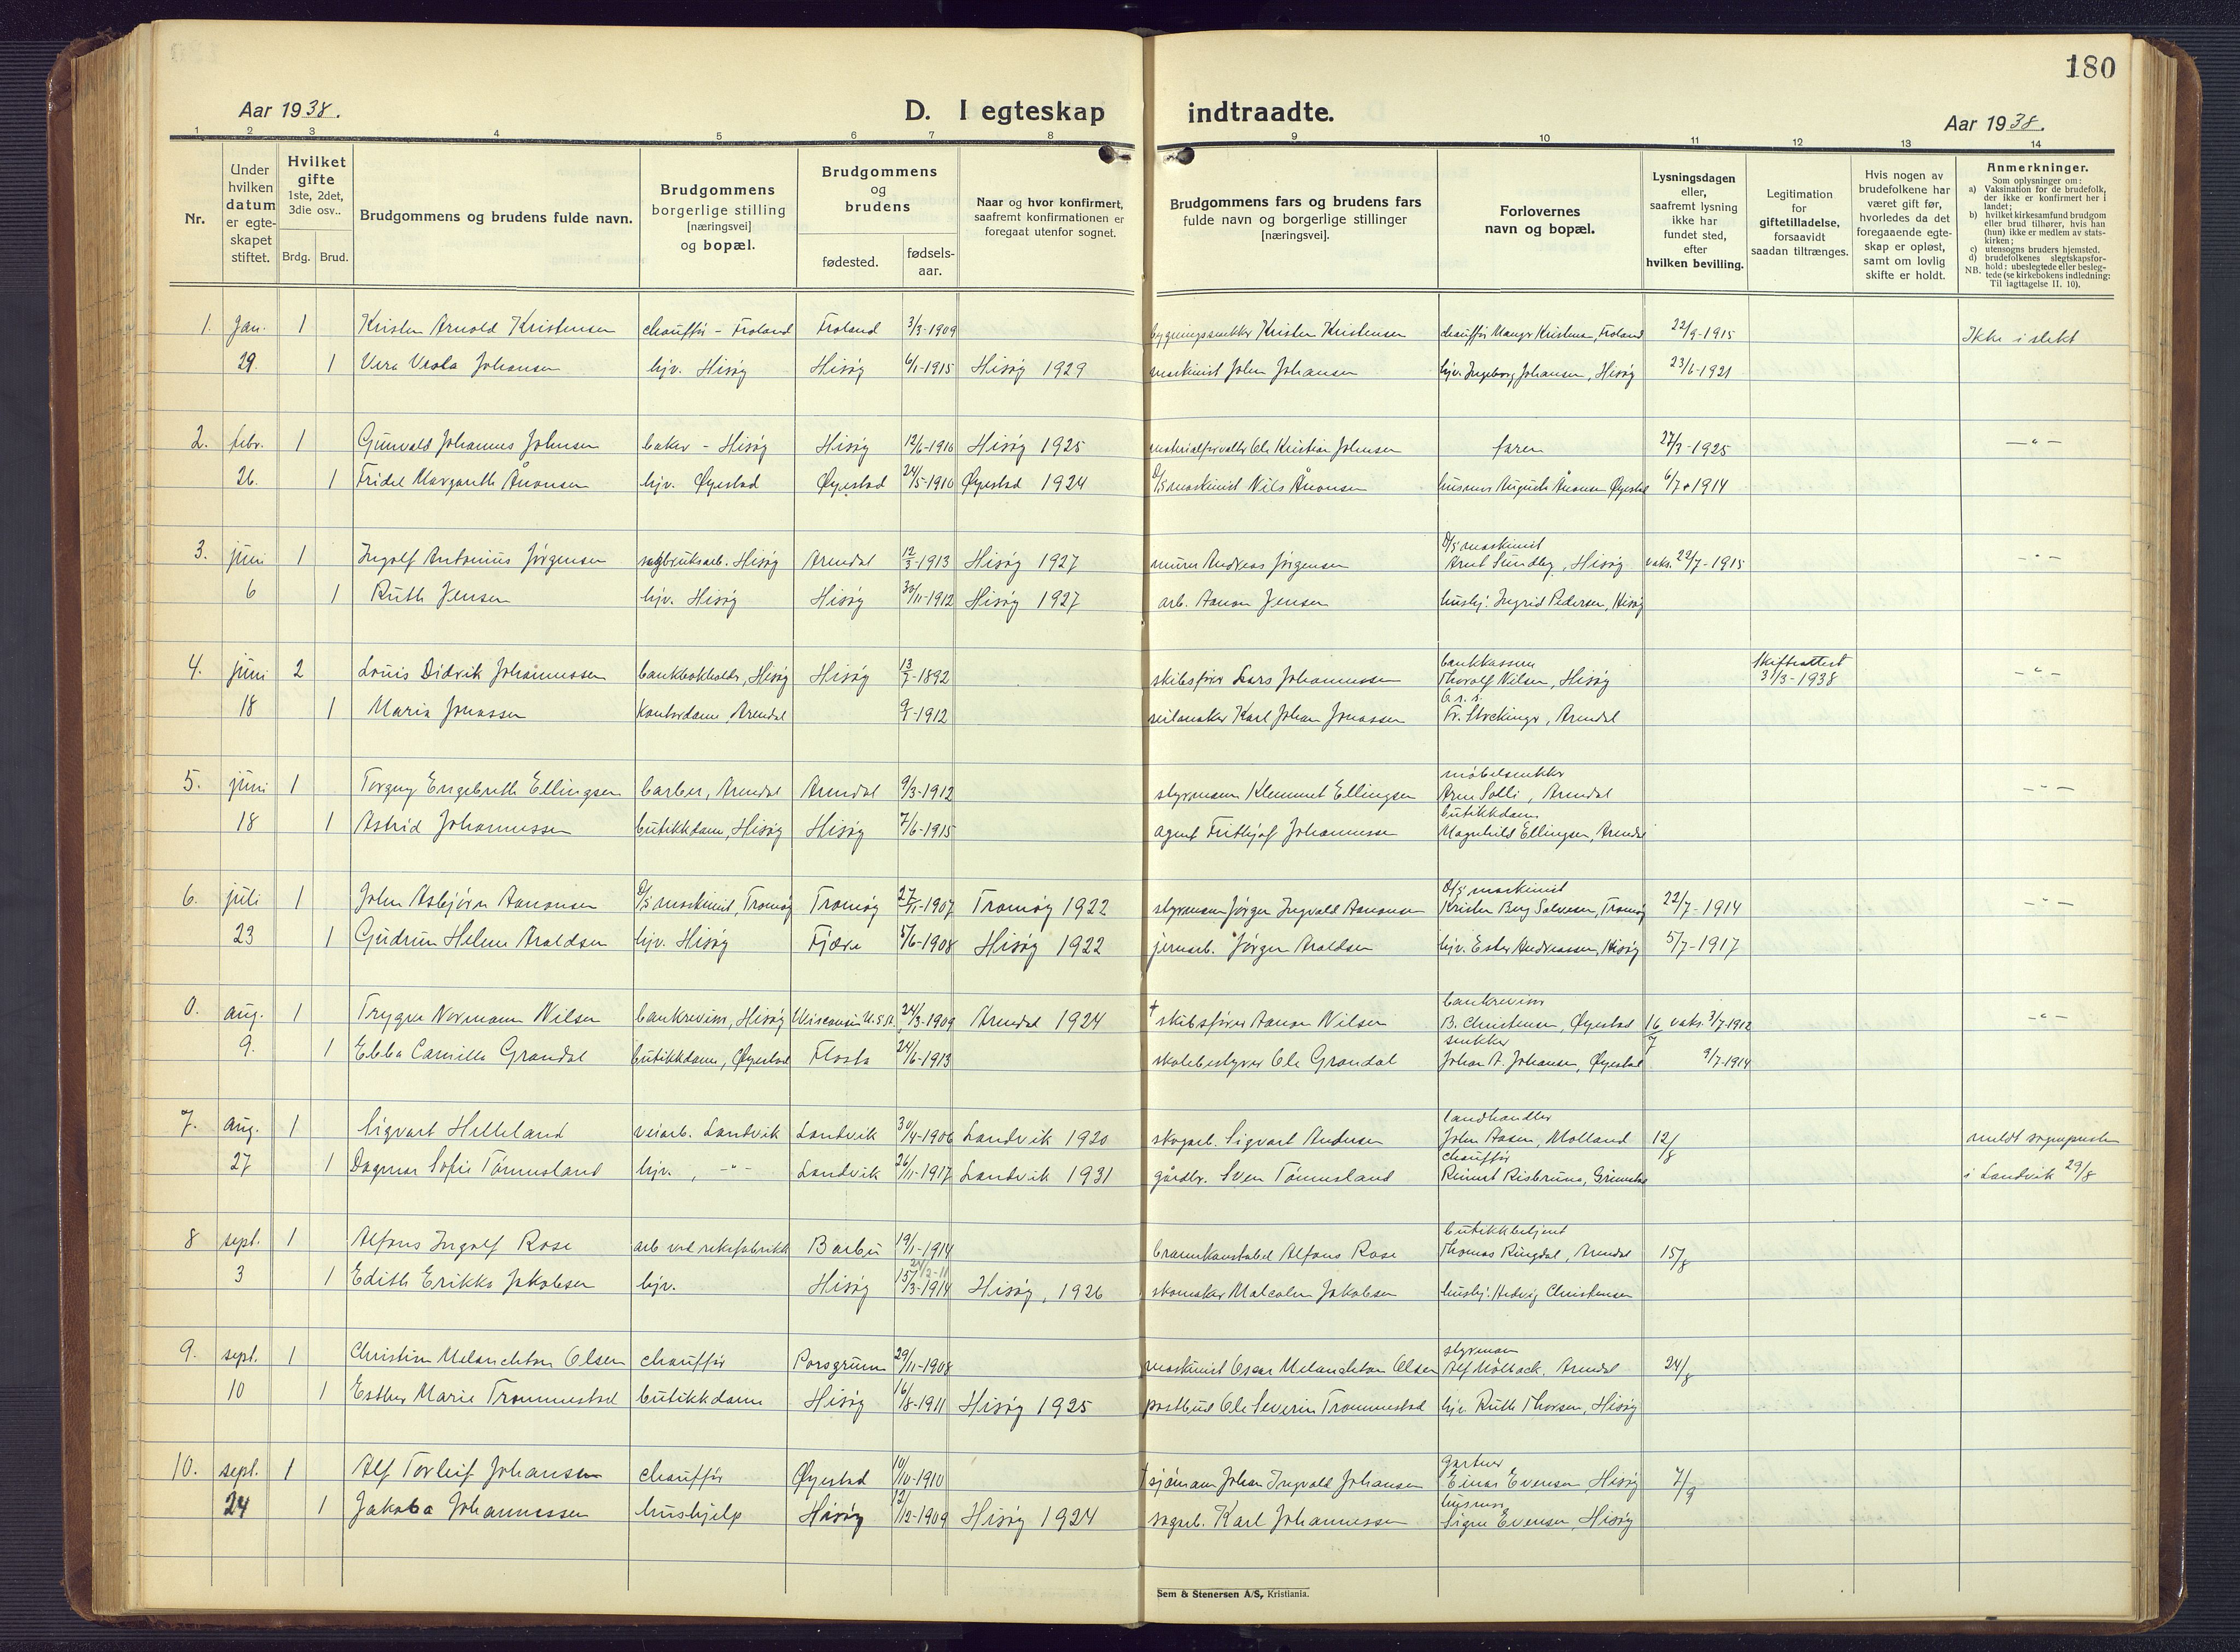 180
Aar 1938.
D. I egteskap indtraadte.
Aar 1938.
1 2 3 4 5 6 7 8 9 10 11 12 13 14
Nr.
Under hvilken datum er egteskapet stiftet.
Hvilket gifte 1ste, 2det, 3die osv..
Brdg. Brud.
Brudgommens og brudens fulde navn.
Brudgommens borgerlige stilling [næringsvei] og bopæl.
Brudgommens og brudens
fødested.
fødselsaar.
Naar og hvor konfirmert, saafremt konfirmationen er foregaat utenfor sognet.
Brudgommens fars og brudens fars fulde navn og borgerlige stillinger [næringsvei].
Forlovernes navn og bopæl.
Lysningsdagen eller, saafremt lysning ikke har fundet sted, efter hvilken bevilling.
Legitimation for giftetilladelse, forsaavidt saadan tiltrænges.
Hvis nogen av brudefolkene har været gift før, hvorledes da det foregaaende egteskap er opløst, samt om lovlig skifte er holdt.
Anmerkninger.
Som oplysninger om:
a) Vaksination for de brudefolk, der ikke er konfirmert her i landet;
b) hvilket kirkesamfund brudgom eller brud tilhører, hvis han (hun) ikke er medlem av statskirken;
c) utensogns bruders hjemsted.
d) brudefolkenes slegtskapsforhold: ubeslegtede eller beslegtede (se kirkebokens indledning: Til iagttagelse II. 10).
NB.
1. Jan. 1 Kristen Arnold Kristensen chauffør - Froland Froland 3/3-1909 bygningssnekker Kristen Kristensen chauffør Kristensen, Froland 22/9-1915 Ikke i slekt
29. 1 Vera Viola Johansen hjv. Hisøy Hisøy 6/1-1915 Hisøy 1929 maskinist John Johansen hjv. Ingeborg Johansen, Hisøy 23/6-1921
2. febr. 1 Gunvald Johannes Johnsen baker - Hisøy Hisøy 12/6-1910 Hisøy 1925 materialforvalter Ole Kristian Johnsen faren 27/3-1925 - " -
26. 1 Fridel Margareth Ånonsen hjv. Øyestad Øyestad 24/5-1910 Øyestad 1924 D/S maskinist Nils Ånonsen husmor Augusta Ånonsen Øyestad 6/7-1914
3. juni 1 Ingolf Antonius Jørgensen sagbruksarb. Hisøy Arendal 12/3-1913 Hisøy 1927 murer Andreas Jørgensen D/S maskinist Arnt Sundby, Hisøy vaks. 22/7-1915 - " -
6 1 Ruth Jensen hjv. Hisøy Hisøy 30/11-1912 Hisøy 1927 arb. Aanon Jensen hushj. Ingrid Pedersen, Hisøy
4. juni 2 Louis Didrik Johannessen bankbokholder, Hisøy Hisøy 13/7-1892 skibsfører Lars Johannessen bankkasserer Thoralf Nilsen, Hisøy Skifteattest 31/3-1938 - " -
18 1 Maria Jonassen Kontordame, Arendal 9/1-1912 seilmaker Karl Johan Jonassen o.r.s. Fr. Stockinger, Arendal
5. juni 1 Torgny Engebreth Ellingsen barber, Arendal Arendal 9/3-1912 styrmann Klemmet Ellingsen møbelsnekker Arne Solli, Arendal - " -
18 1 Astrid Johannessen butikkdame, Hisøy Hisøy 7/6-1915 agent Frithjof Johannessen butikkdame Magnhild Ellingsen, Arendal
6. juli 1 John Asbjørn Aanonsen D/S maskinist, Tromøy Tromøy 27/11-1907 Tromøy 1922 styrmann Jørgen Ingvald Aanonsen D/S maskinist Krister Berg Salvesen, Tromøy 22/7-1914 - " -
23 1 Gudrun Helene Araldsen hjv. Hisøy Fjære 5/6-1908 Hisøy 1922 jernarb. Jørgen Araldsen hjv. Ester Andreassen, Hisøy 5/7-1917
0. aug. 1 Trygve Normann Nilsen bankrevisor, Hisøy Wisconsin U.S.A. 24/3-1909 Arendal 1924 + skibsfører Aanon Nilsen bankrevisor B. Christensen, Øyestad 16/7 vaks. 3/7-1912 - " -
9. 1 Ebba Camilla Grandal butikkdame, Øyestad Flosta 24/6-1913 skolebestyrer Ole Grandal snekker Johan A. Johansen, Øyestad 9/7-1914
7. aug. 1 Sigvart Helleland veiarb. Landvik Landvik 30/4-1906 Landvik 1920 skogarb. Sigvart Andersen landhandler John Aasen, Molland 12/8 meldt sognepresten
27 1 Dagmar Sofie Tønnesland hjv. , - " - Landvik 26/11-1917 Landvik 1931 gårdbr. Sven Tønnesland chauffør Reinert Risbruna, Grimstad i Landvik 29/8
8 sept. 1 Alfons Ingolf Rose arb ved rekefabrikk Barbu 19/1-1914 brannkonstabel Alfons Rose butikkbetjent Thomas Ringdal, Arendal 15/8
3 1 Edith Erikka Jakobsen hjv. Hisøy 15/3-1914 Hisøy, 1926 skomaker Malcolm Jakobsen hushj. Hedvig Christensen
9. sept. 1 Christian Melanchton Olsen chauffør Porsgrunn 29/11-1908 maskinist Oscar Melanchton Olsen styrmann Alf Mølback. Arendal 24/8
10 1 Esther Marie Trommestad butikkdame Hisøy 16/8-1911 Hisøy 1925 postbud Ole Severin Trommestad hjv. Ruth Thorsen, Hisøy
10. sept. 1 Alf Torleif Johansen chauffør Øyestad 10/10-1910 + sjømann Johan Ingvald Johansen gartner Einar Evensen, Hisøy 7/9
24 1 Jakoba Johannessen hushjelp Hisøy 12/12-1909 Hisøy 1924 sagarb. Karl Johannessen husmor Signe Evensen, Hisøy
Sem & Stenersen A/S, Kristiania.